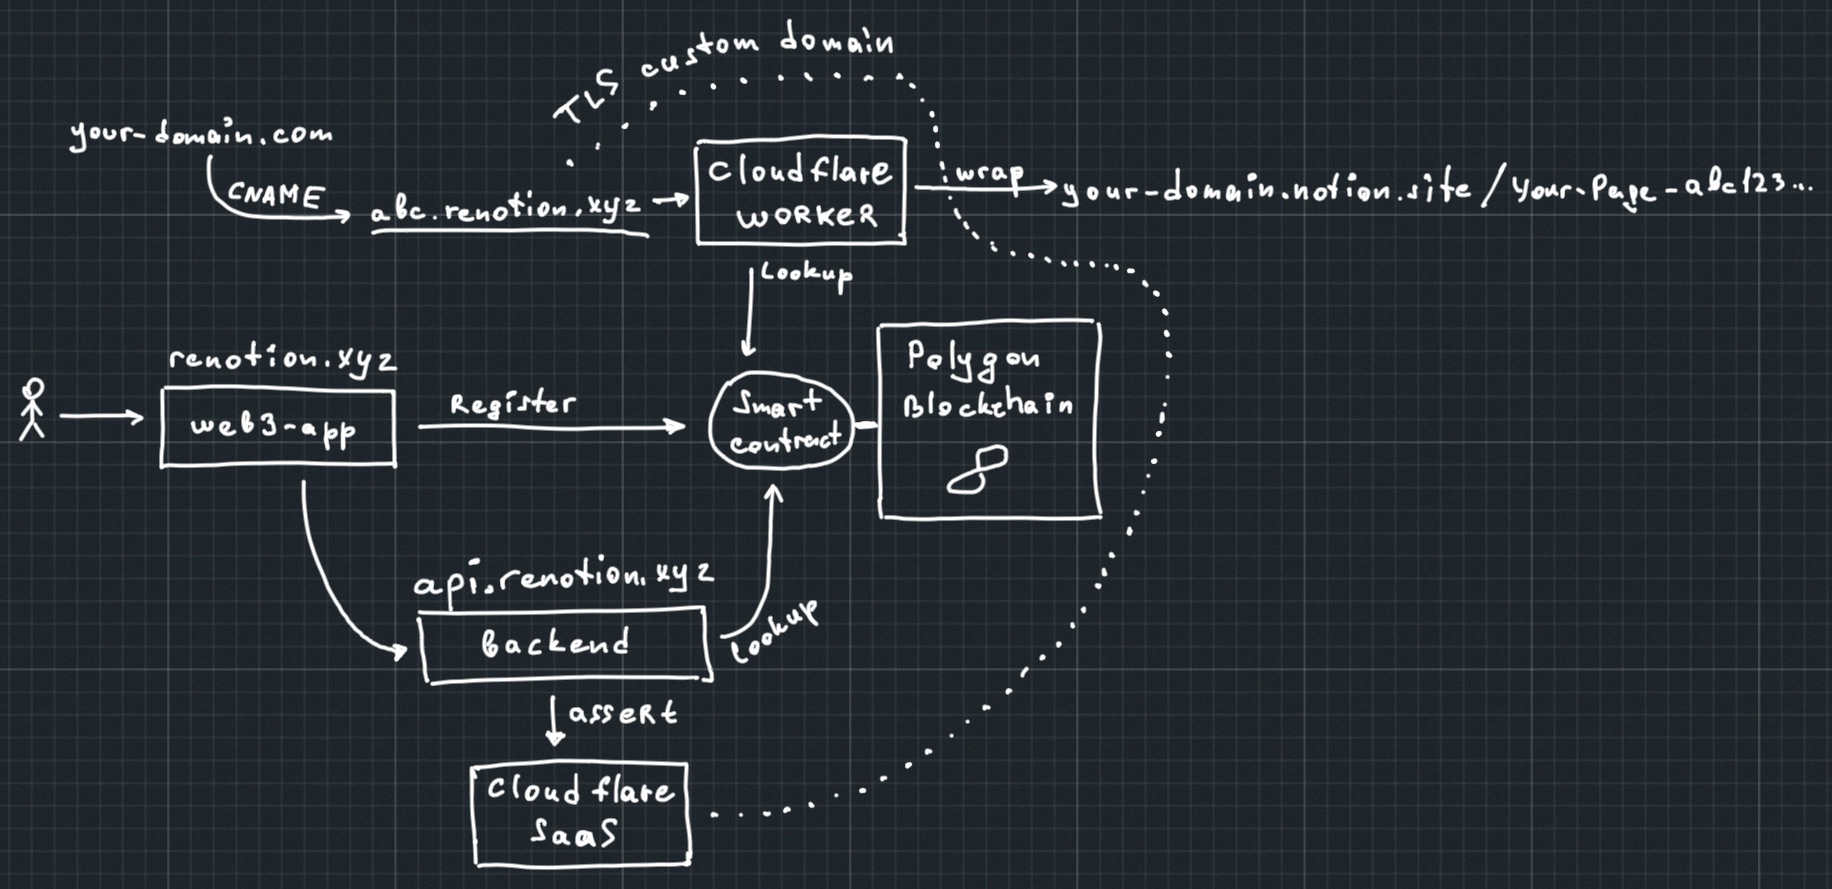 TLS custom domain
your-domain.com
CNAME
abc.renotion.xyz
Cloudflare
WORKER
wrap
your-domain.notion.site/your-Page-abc123...
Lookup
renotion.xyz
web3-app
Register
Smart
contract
Polygon
Blockchain
api.renotion.xyz
Backend
Lookup
assert
Cloudflare
SaaS